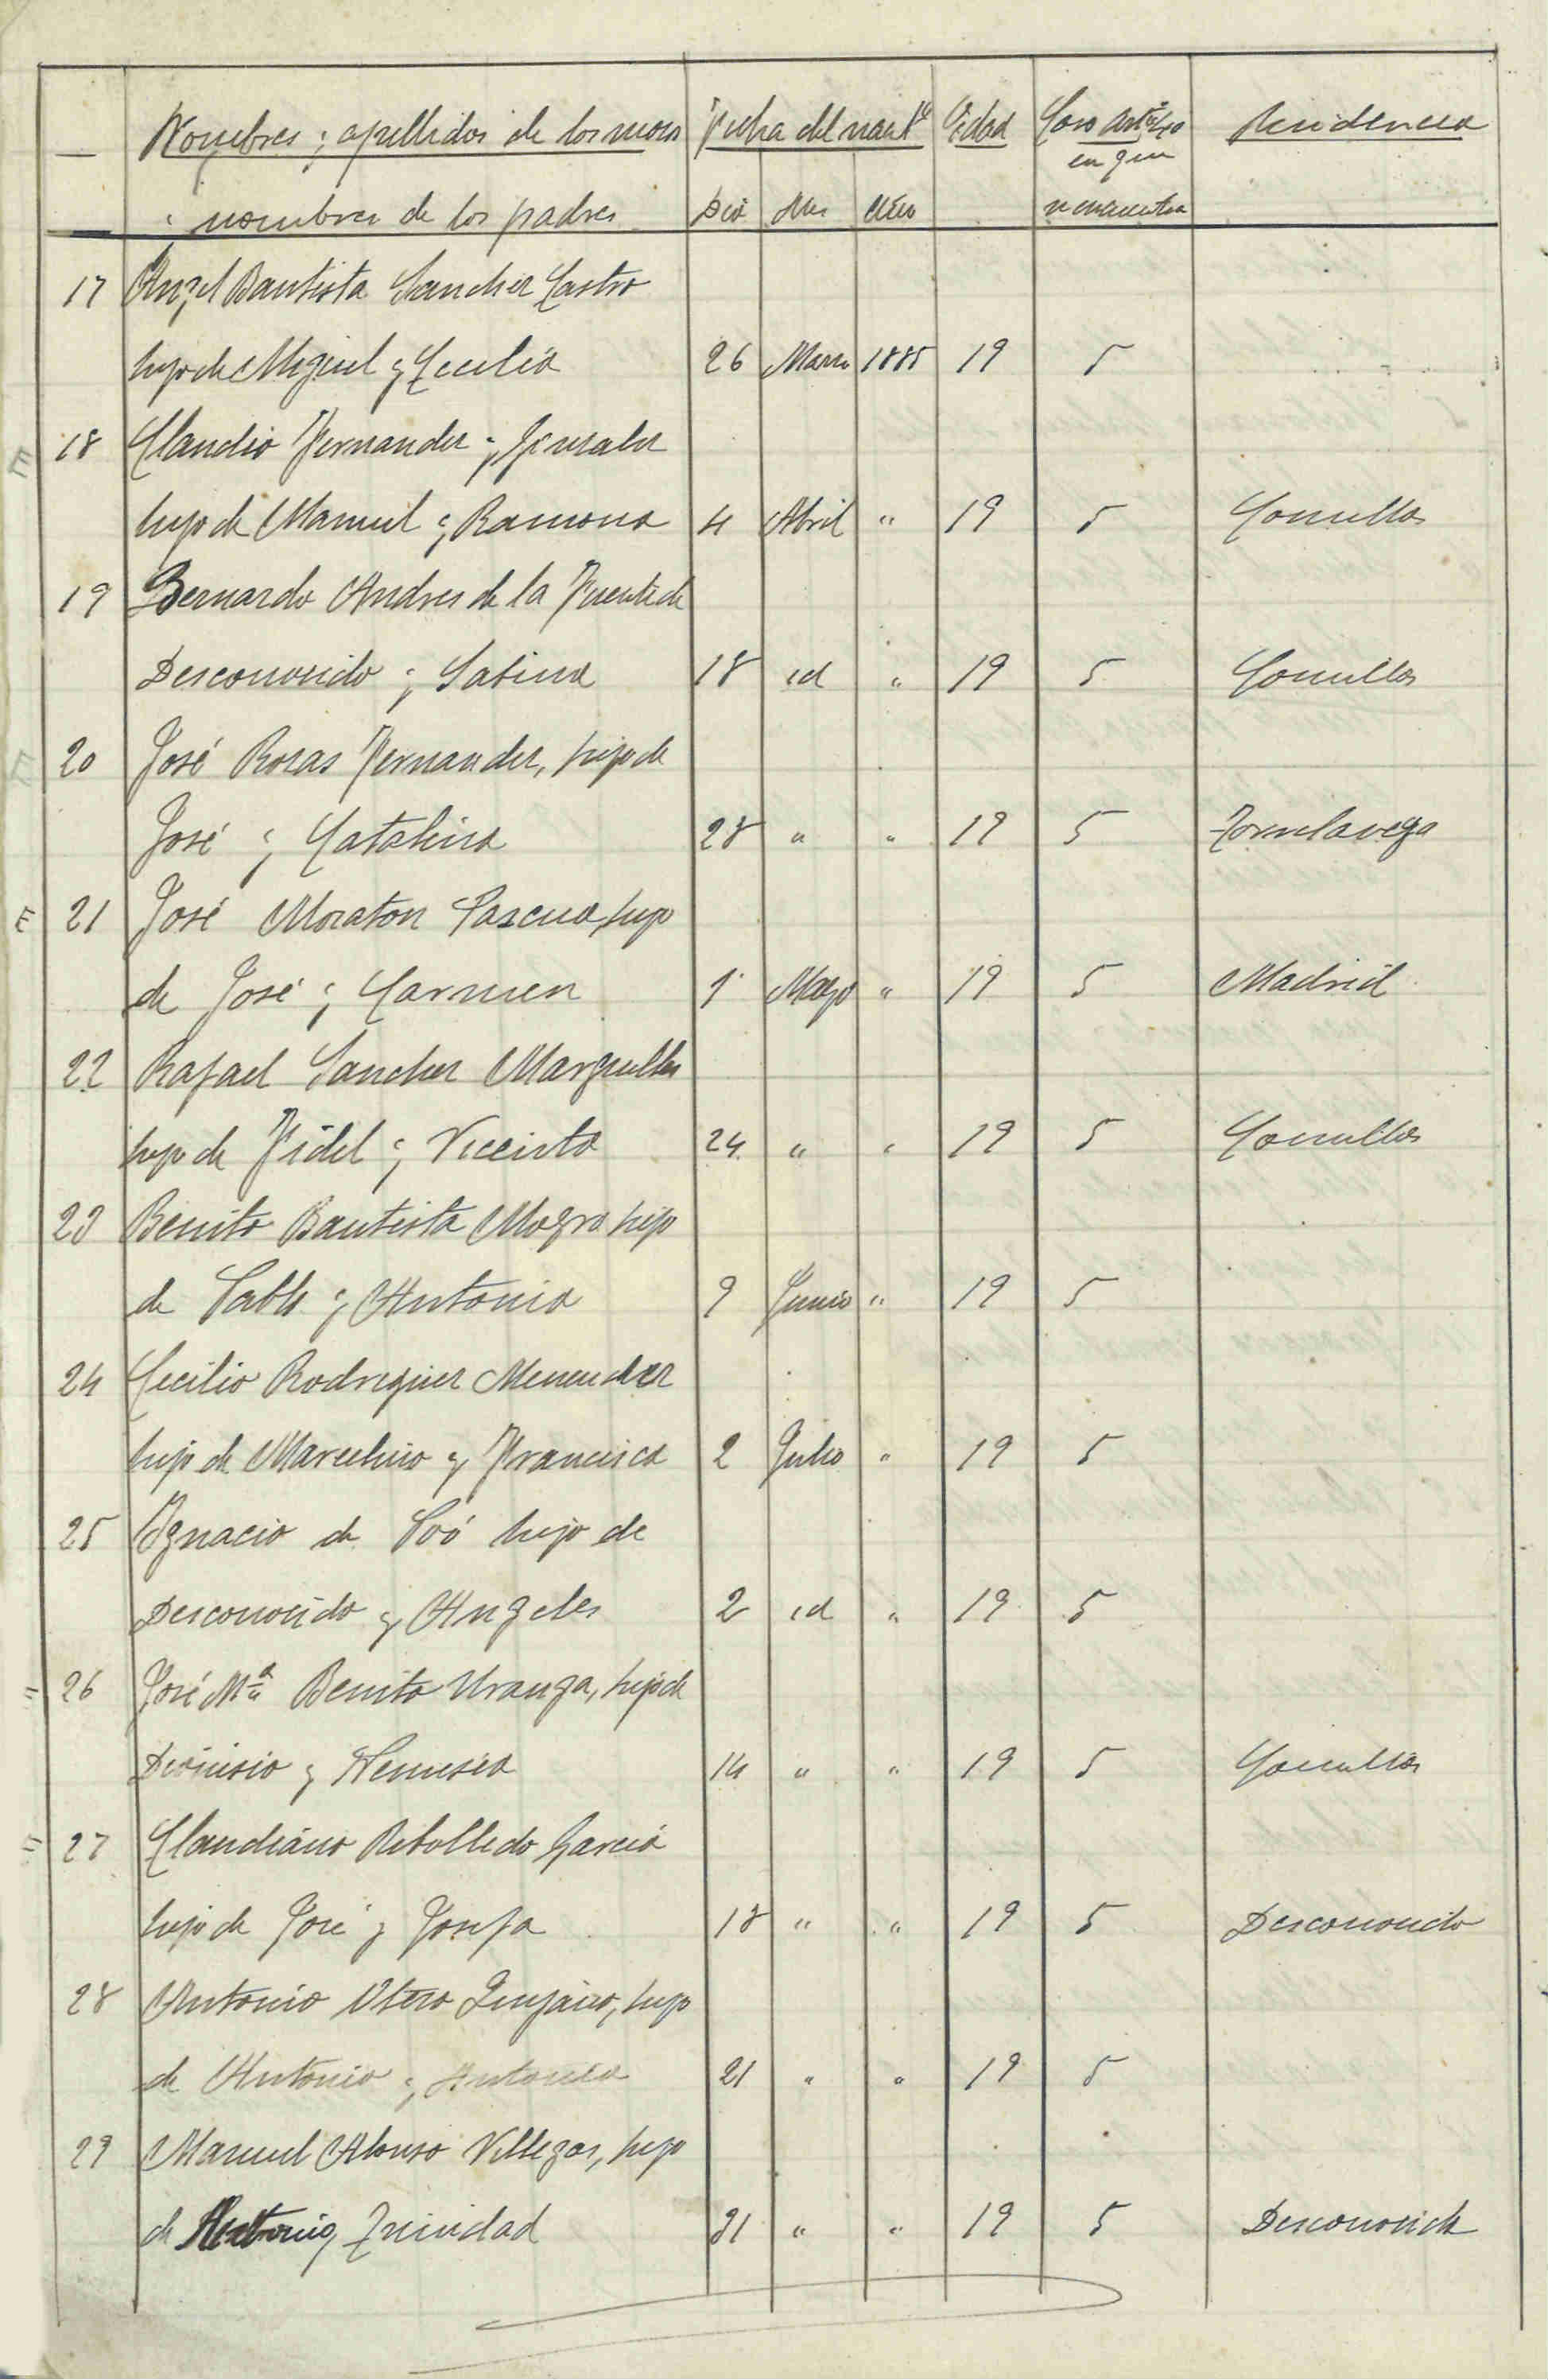 — Nombres y apellidos de los mozos Fecha del nacto Edad Caso artº 40 Residencia
en que
y nombres de los padres Dia Mes Año se encuentra
17 Angel Bautista Sanchez Castro
hijo de Miguel y Cecilia 26 Marzo 1885 19 5
E 18 Claudio Fernandez y Gonzalez
hijo de Manuel y Ramona 4 Abril " 19 5 Comillas
19 Bernardo Andres de la Fuente de
Desconocido y Sabina 18 id " 19 5 Comillas
E 20 José Rozas Fernandez, hijo de
José y Catalina 28 " " 19 5 Torrelavega
E 21 José Moraton Pascua, hijo
de José y Carmen 1º Mayo " 19 5 Madrid
22 Rafael Sanchez Marguelles
hijo de Fidel y Vicenta 24 " " 19 5 Comillas
23 Benito Bautista Mogro hijo
de Pablo y Antonia 9 Junio " 19 5
24 Cecilio Rodriguez Menendez
hijo de Marcelino y Francisca 2 Julio " 19 5
25 Ygnacio de Poó hijo de
Desconocido y Angeles 2 id " 19 5
26 José Mª Benito Uranga, hijo de
Dionisio y Nemesia 14 " " 19 5 Comillas
27 Claudiano Rebolledo Garcia
hijo de José y Josefa 18 " " 19 5 Desconocido
28 Antonio Otero, hijo
de Antonio y Antonia 21 " " 19 5
29 Manuel Alonso Villegas, hijo
de Antonio y Trinidad 31 " " 19 5 Desconocido